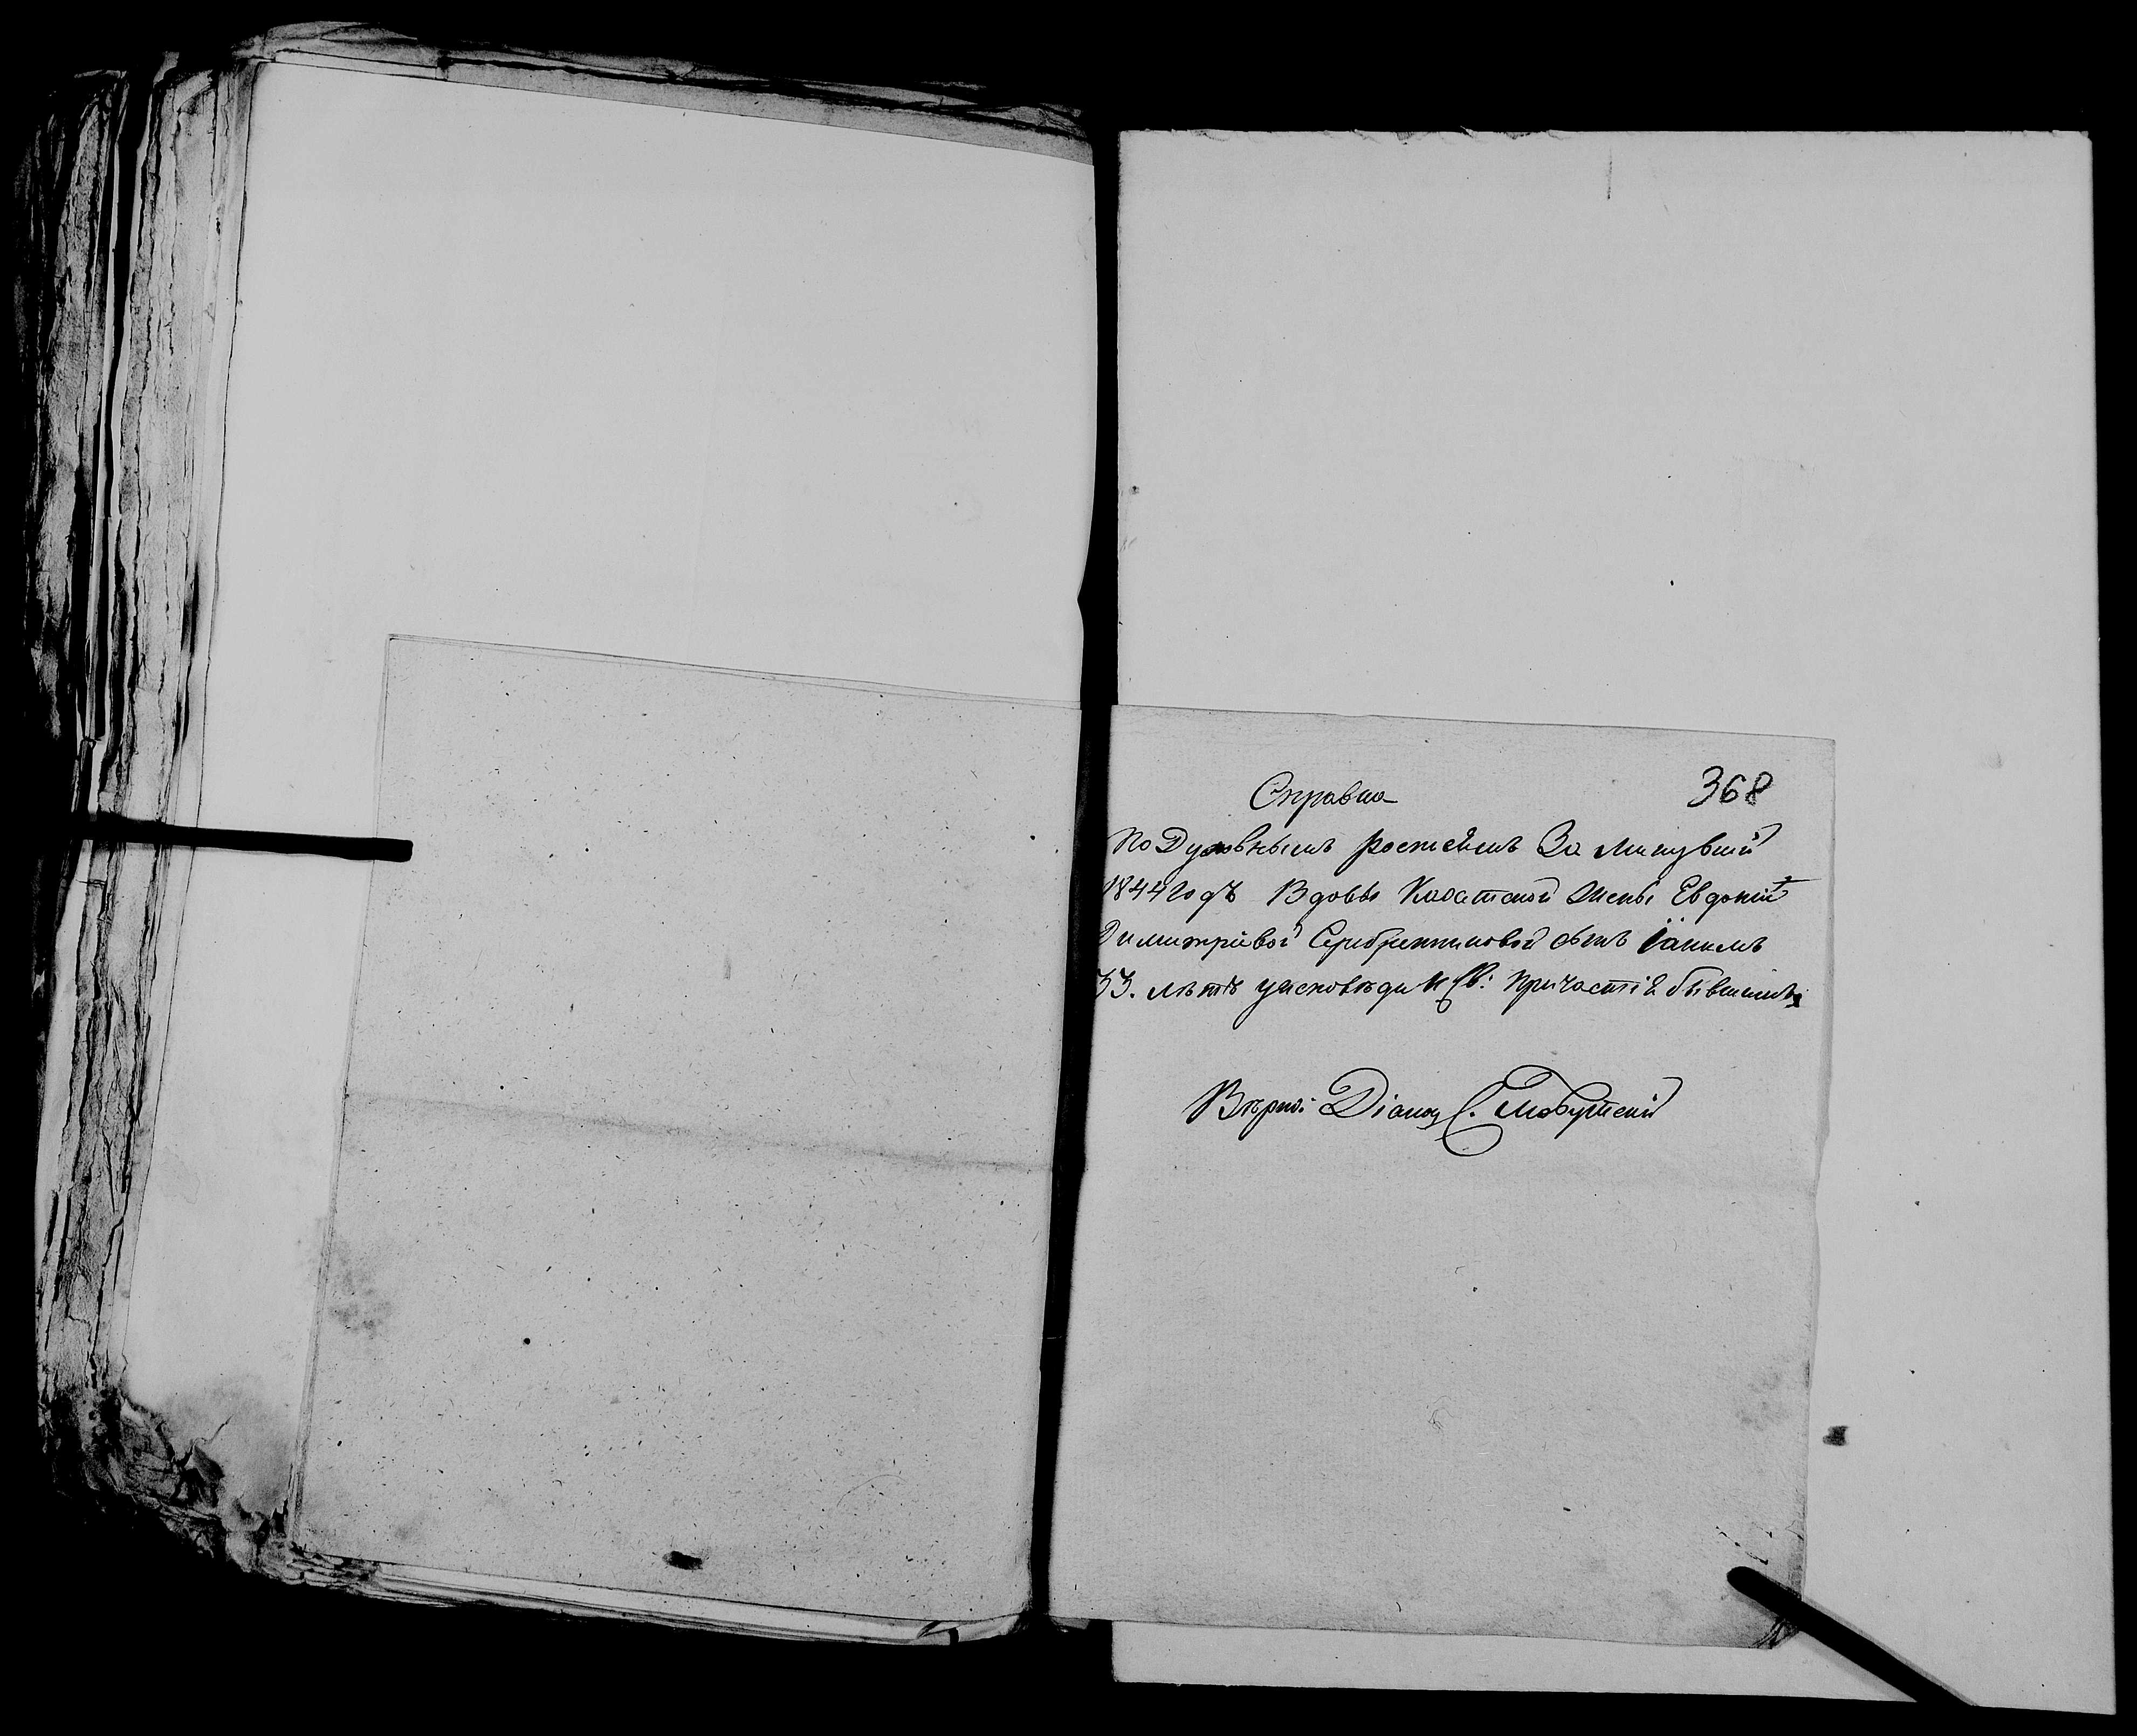 Справка
368
по Духовнымъ росписямъ За Минувшій
1844 годъ Вдовы Казатской Жены Евдокіи
Димитріевой Серебрениковой сынъ Іакимъ
33. лѣтъ уисповѣди и Св: Причастія бывшимъ
Вѣрно: Діаконъ С.